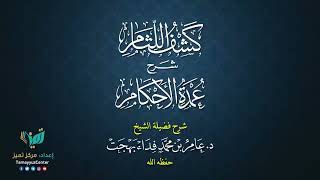 كَشْفُ اللِّثَامِ
شَرْحُ
عُمْدَةُ الْأَحْكَامِ
شرح فضيلة الشيخ
د. عَامِر بْن مُحَمَّد فِدَاء بَهْجَت
حفظه الله
تميز
إعداد: مركز تميز
TamayyuzCenter